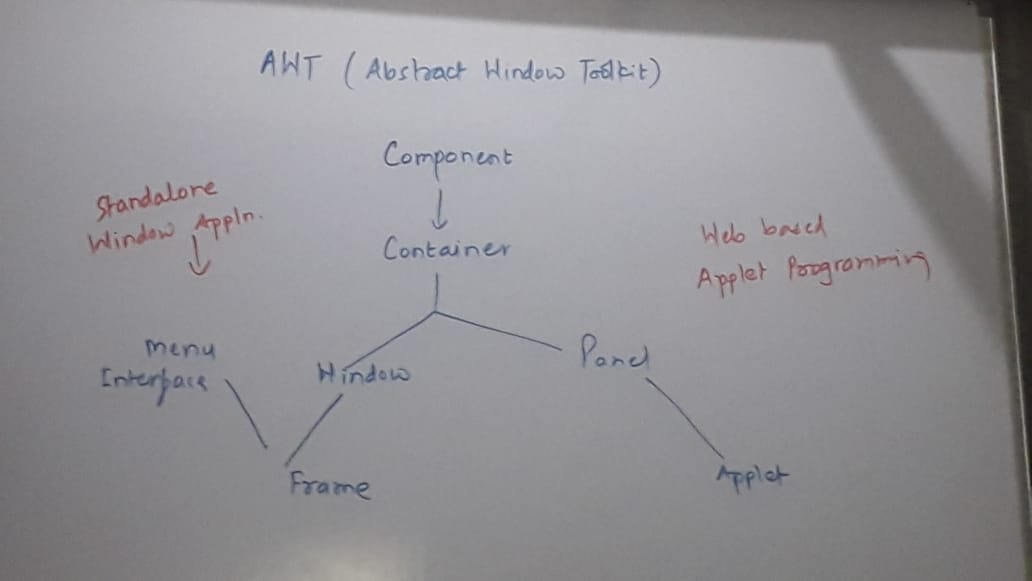 AWT (Abstract Window Toolkit)
Component
Standalone
Window Appln.
Container
Web based
Applet Programming
Menu
Interface
Window
Panel
Frame
Applet